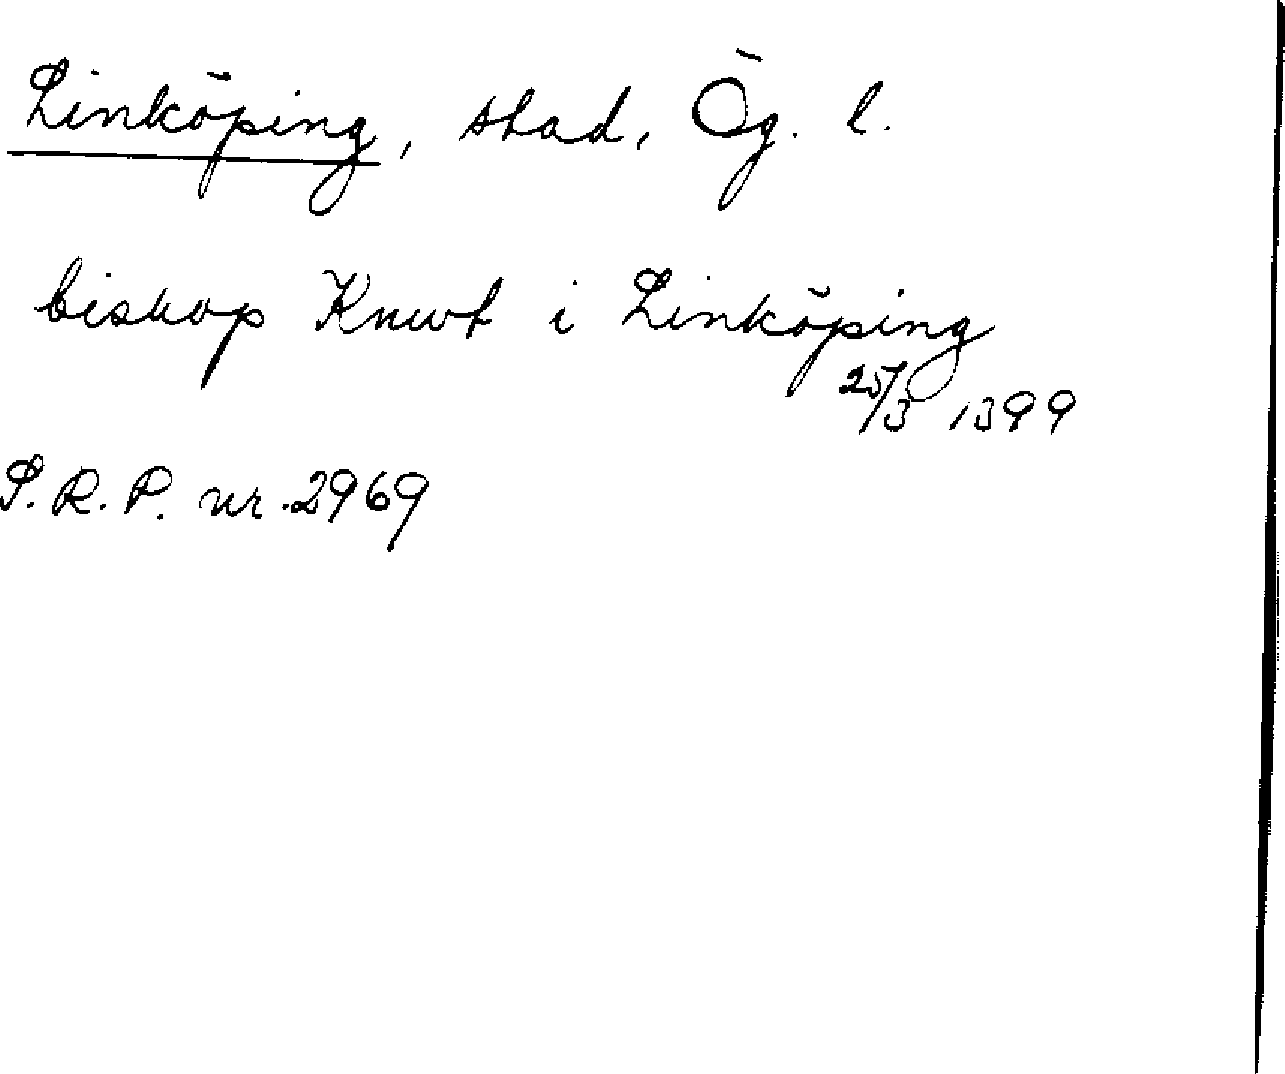 Linköping, stad, Ög. l.
biskop Knwt i Linköping
25/3 1399
S. R. P. nr. 2969